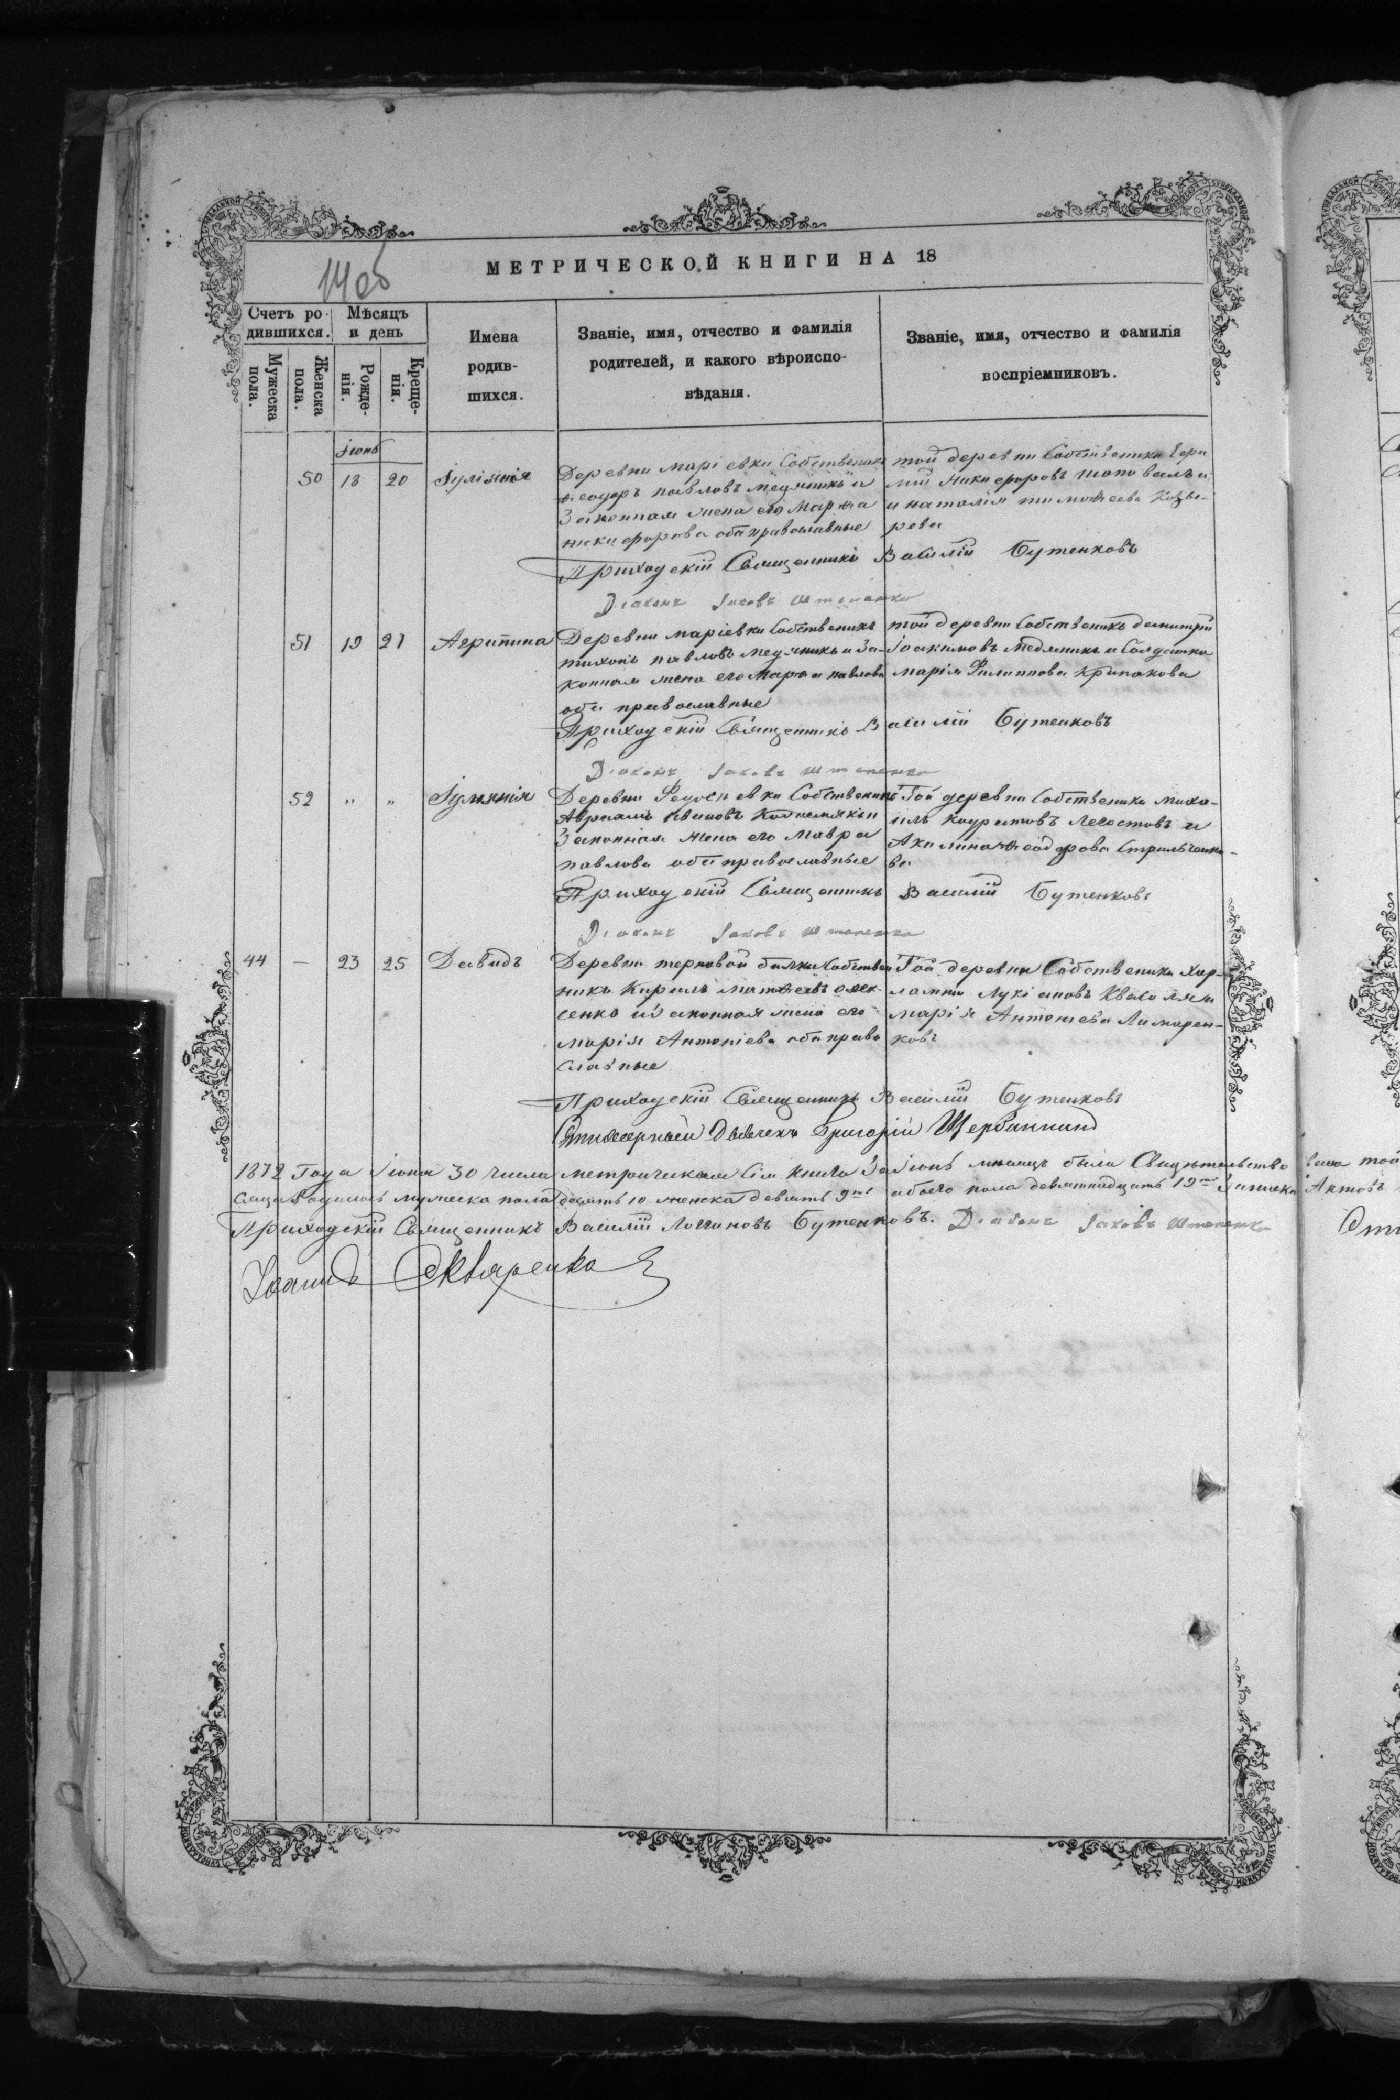 14 об
МЕТРИЧЕСКОЙ КНИГИ НА 18
Счетъ ро-
дившихся.
Мѣсяцъ
и день
Мужеска
пола.
Женска
пола.
Рожде-
нія.
Креще-
нія.
Имена
родив-
шихся.
Званіе, имя, отчество и фамилія
родителей, и какого вѣроиспо-
вѣданія.
Званіе, имя, отчество и фамилія
воспріемниковъ.
Іюнь
50 18 20 Іуліянія
Деревни Маріевки Собственикъ
Ѳеодоръ павловъ Медяникъ и
Законная жена его Марѳа
никифорова оба православные
той деревни Собственикъ
никифоровъ и
и наталія тимоѳеева
рева
Приходскій Священникъ Василій Бутенковъ
Діаконъ Іаковъ Штепенко
51 19 21 Агрипина
Деревни маріевки Собственикъ
тихонъ павловъ Медяникъ и За-
конная жена его Марѳа павлова
оба православные
той деревни Собственикъ димитрій
Іоакимовъ Медяникъ и Солдатка
Марія Филиппова Крипакова
Приходскій Священникъ Василій Бутенковъ
Діаконъ Іаковъ Штепенко
52 " " Іуліянія
Деревни Федосѣевки Собственикъ
Авраамъ Ивановъ и
Законная жена его Мавра
павлова оба православные
Той деревни Собственикъ Миха-
илъ Кодратовъ Легостовъ и
Акилина Ѳеодорова Стрильченко-
ва
Приходскій Священникъ Василій Бутенковъ
Діаконъ Іаковъ Штепенко
44 — 23 25 Давидъ
Деревни терновой балки Собствен
никъ Кирилъ Матѳеевъ Олек-
сенко и законная жена его
Марія Антоніева оба право
славные
Той деревни Собственикъ Хар-
лампій Лукіановъ и
Марія Антоніева Лимарен-
ковъ
Приходскій Священникъ Василій Бутенковъ
Григорій Щербанинъ
1872 Года Іюня 30 числа метрическая Сія книга За Іюнь месяцъ была Свидѣтельство
вана той
родилось мужеска пола десять 10 женска девять 9 обоего пола девятнадцать 19 Записка Актовъ
Приходскій Священникъ Василій Логиновъ Бутенковъ. Діаконъ Іаковъ Штепенко
Іоаннъ Скляренко